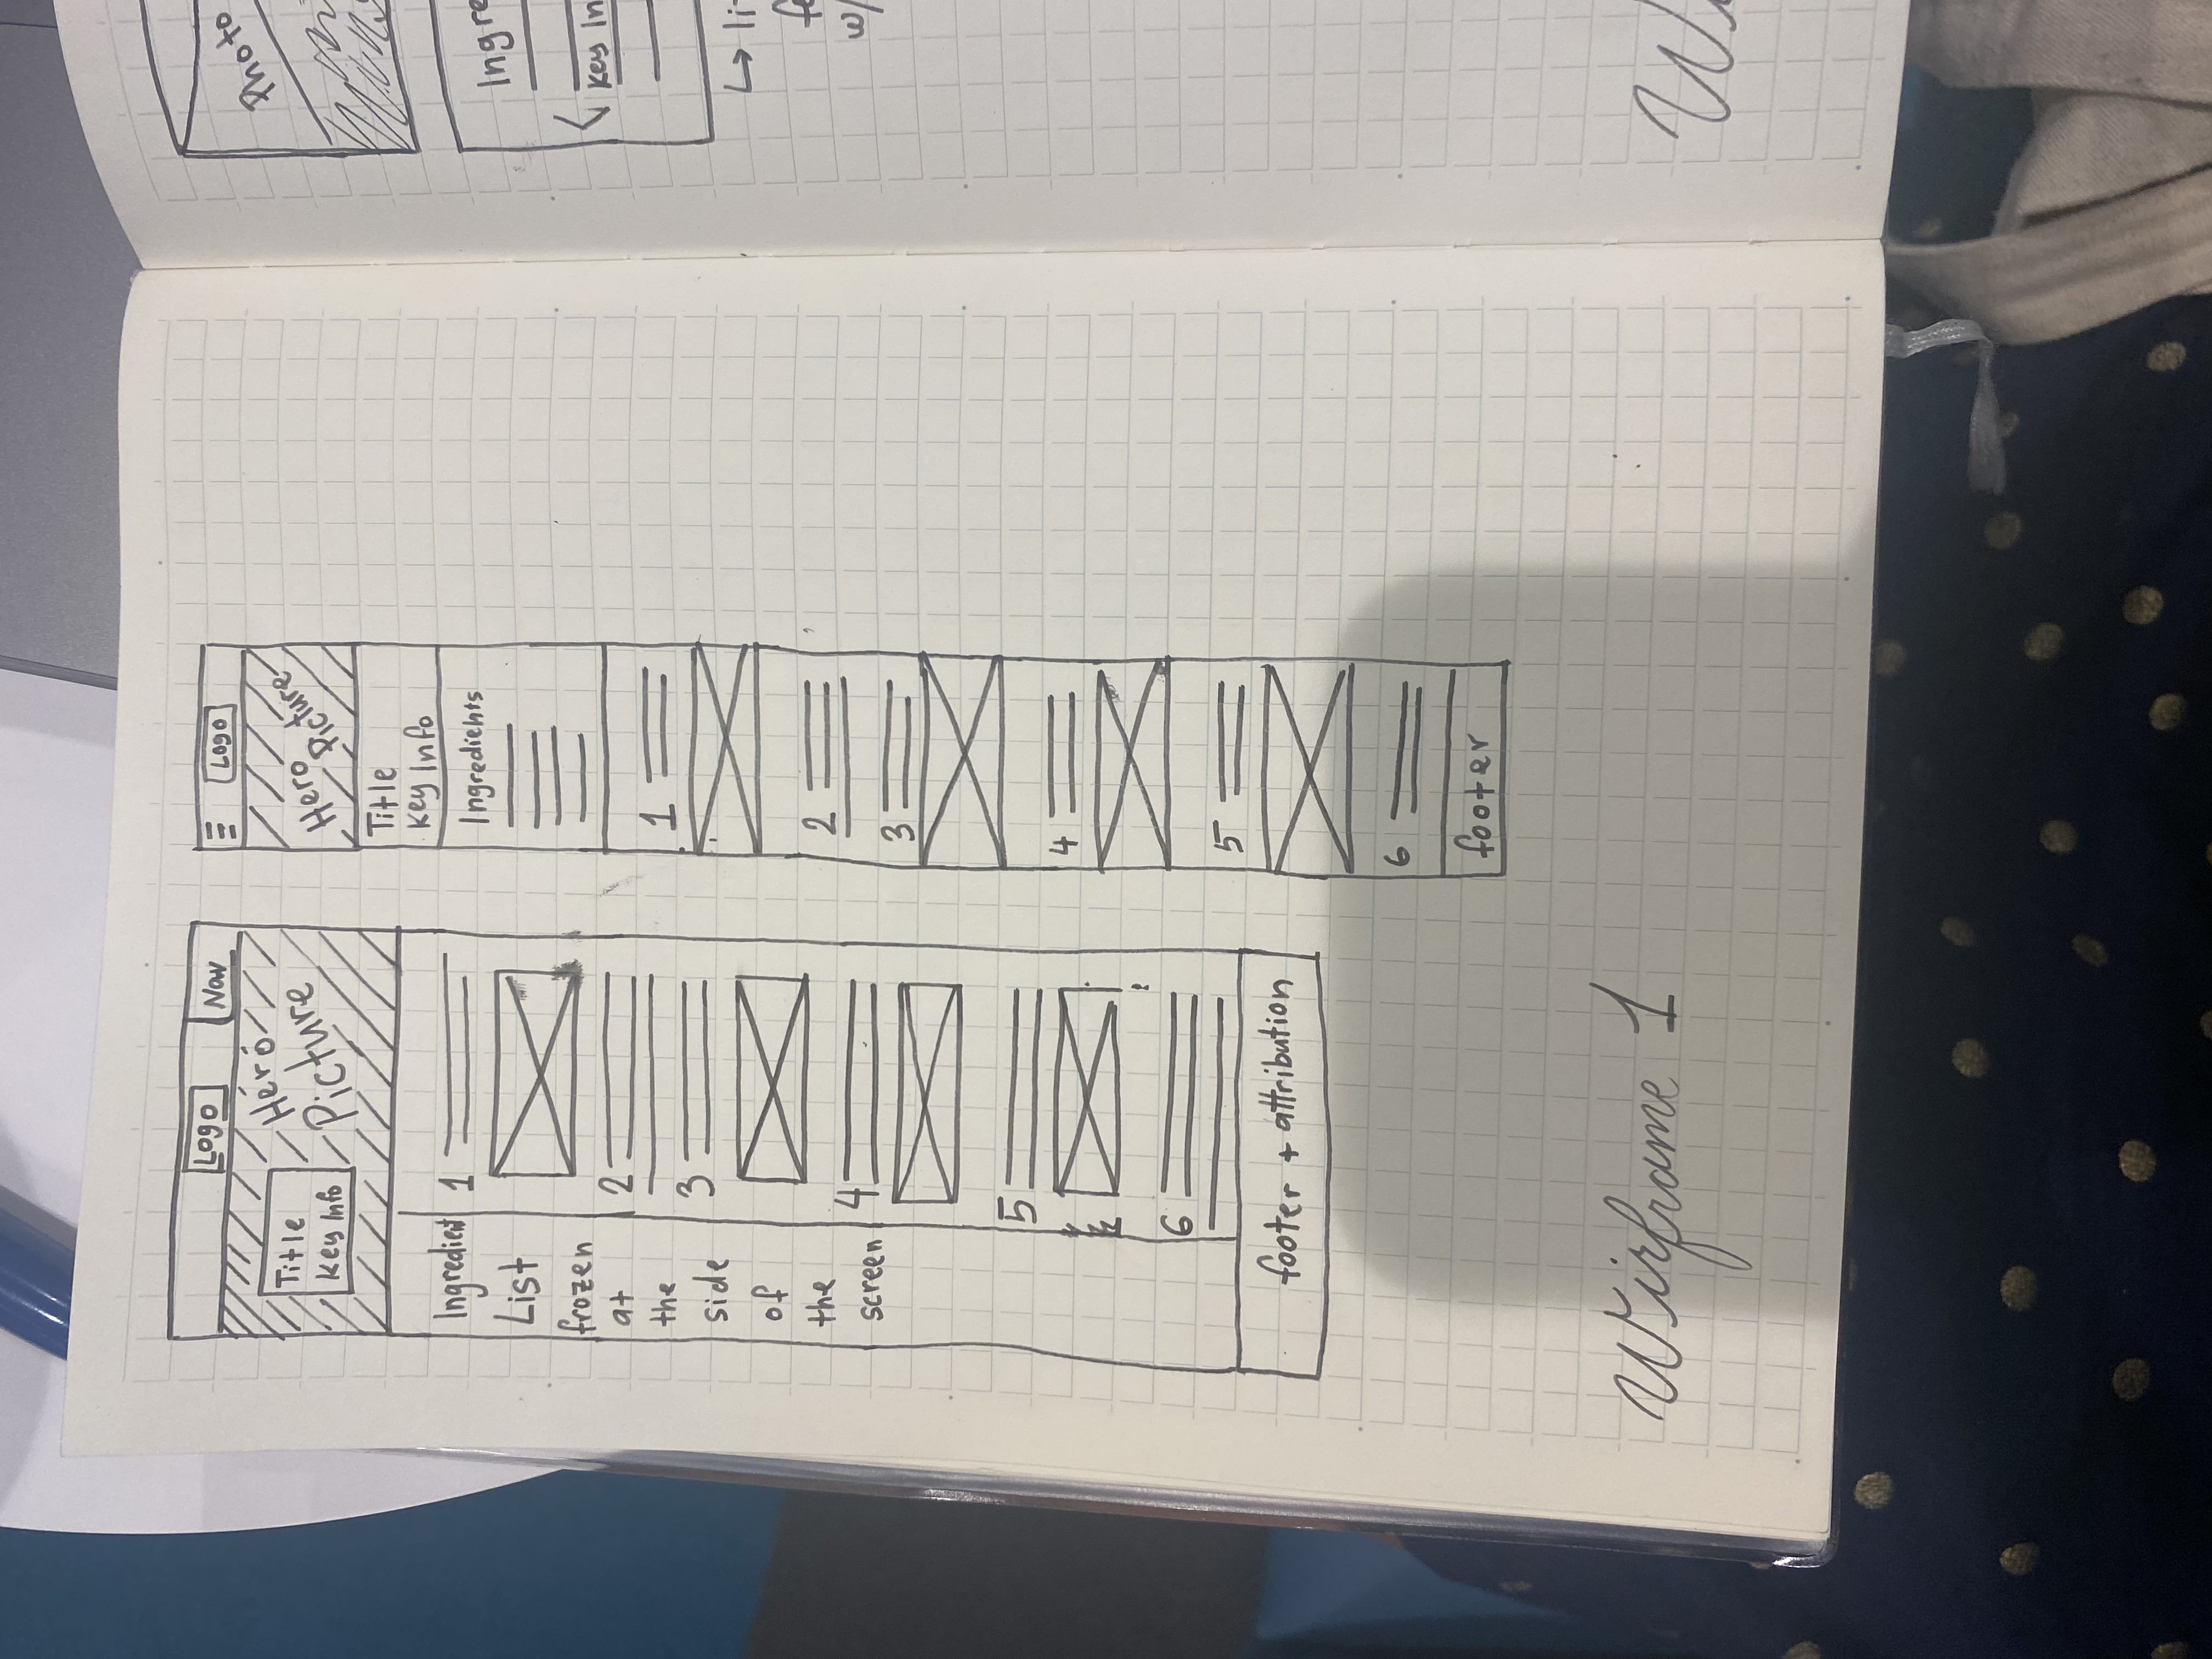 Logo
Nav
Hero
Picture
Title
Key Info
Ingredient
List
frozen
at
the
side
of
the
screen
1
2
3
4
5
6
footer + attribution
Logo
Hero
Picture
Title
Key Info
Ingredients
1
2
3
4
5
6
footer
Wirframe 1
Photo
Ingre
Key In
li
w/
W